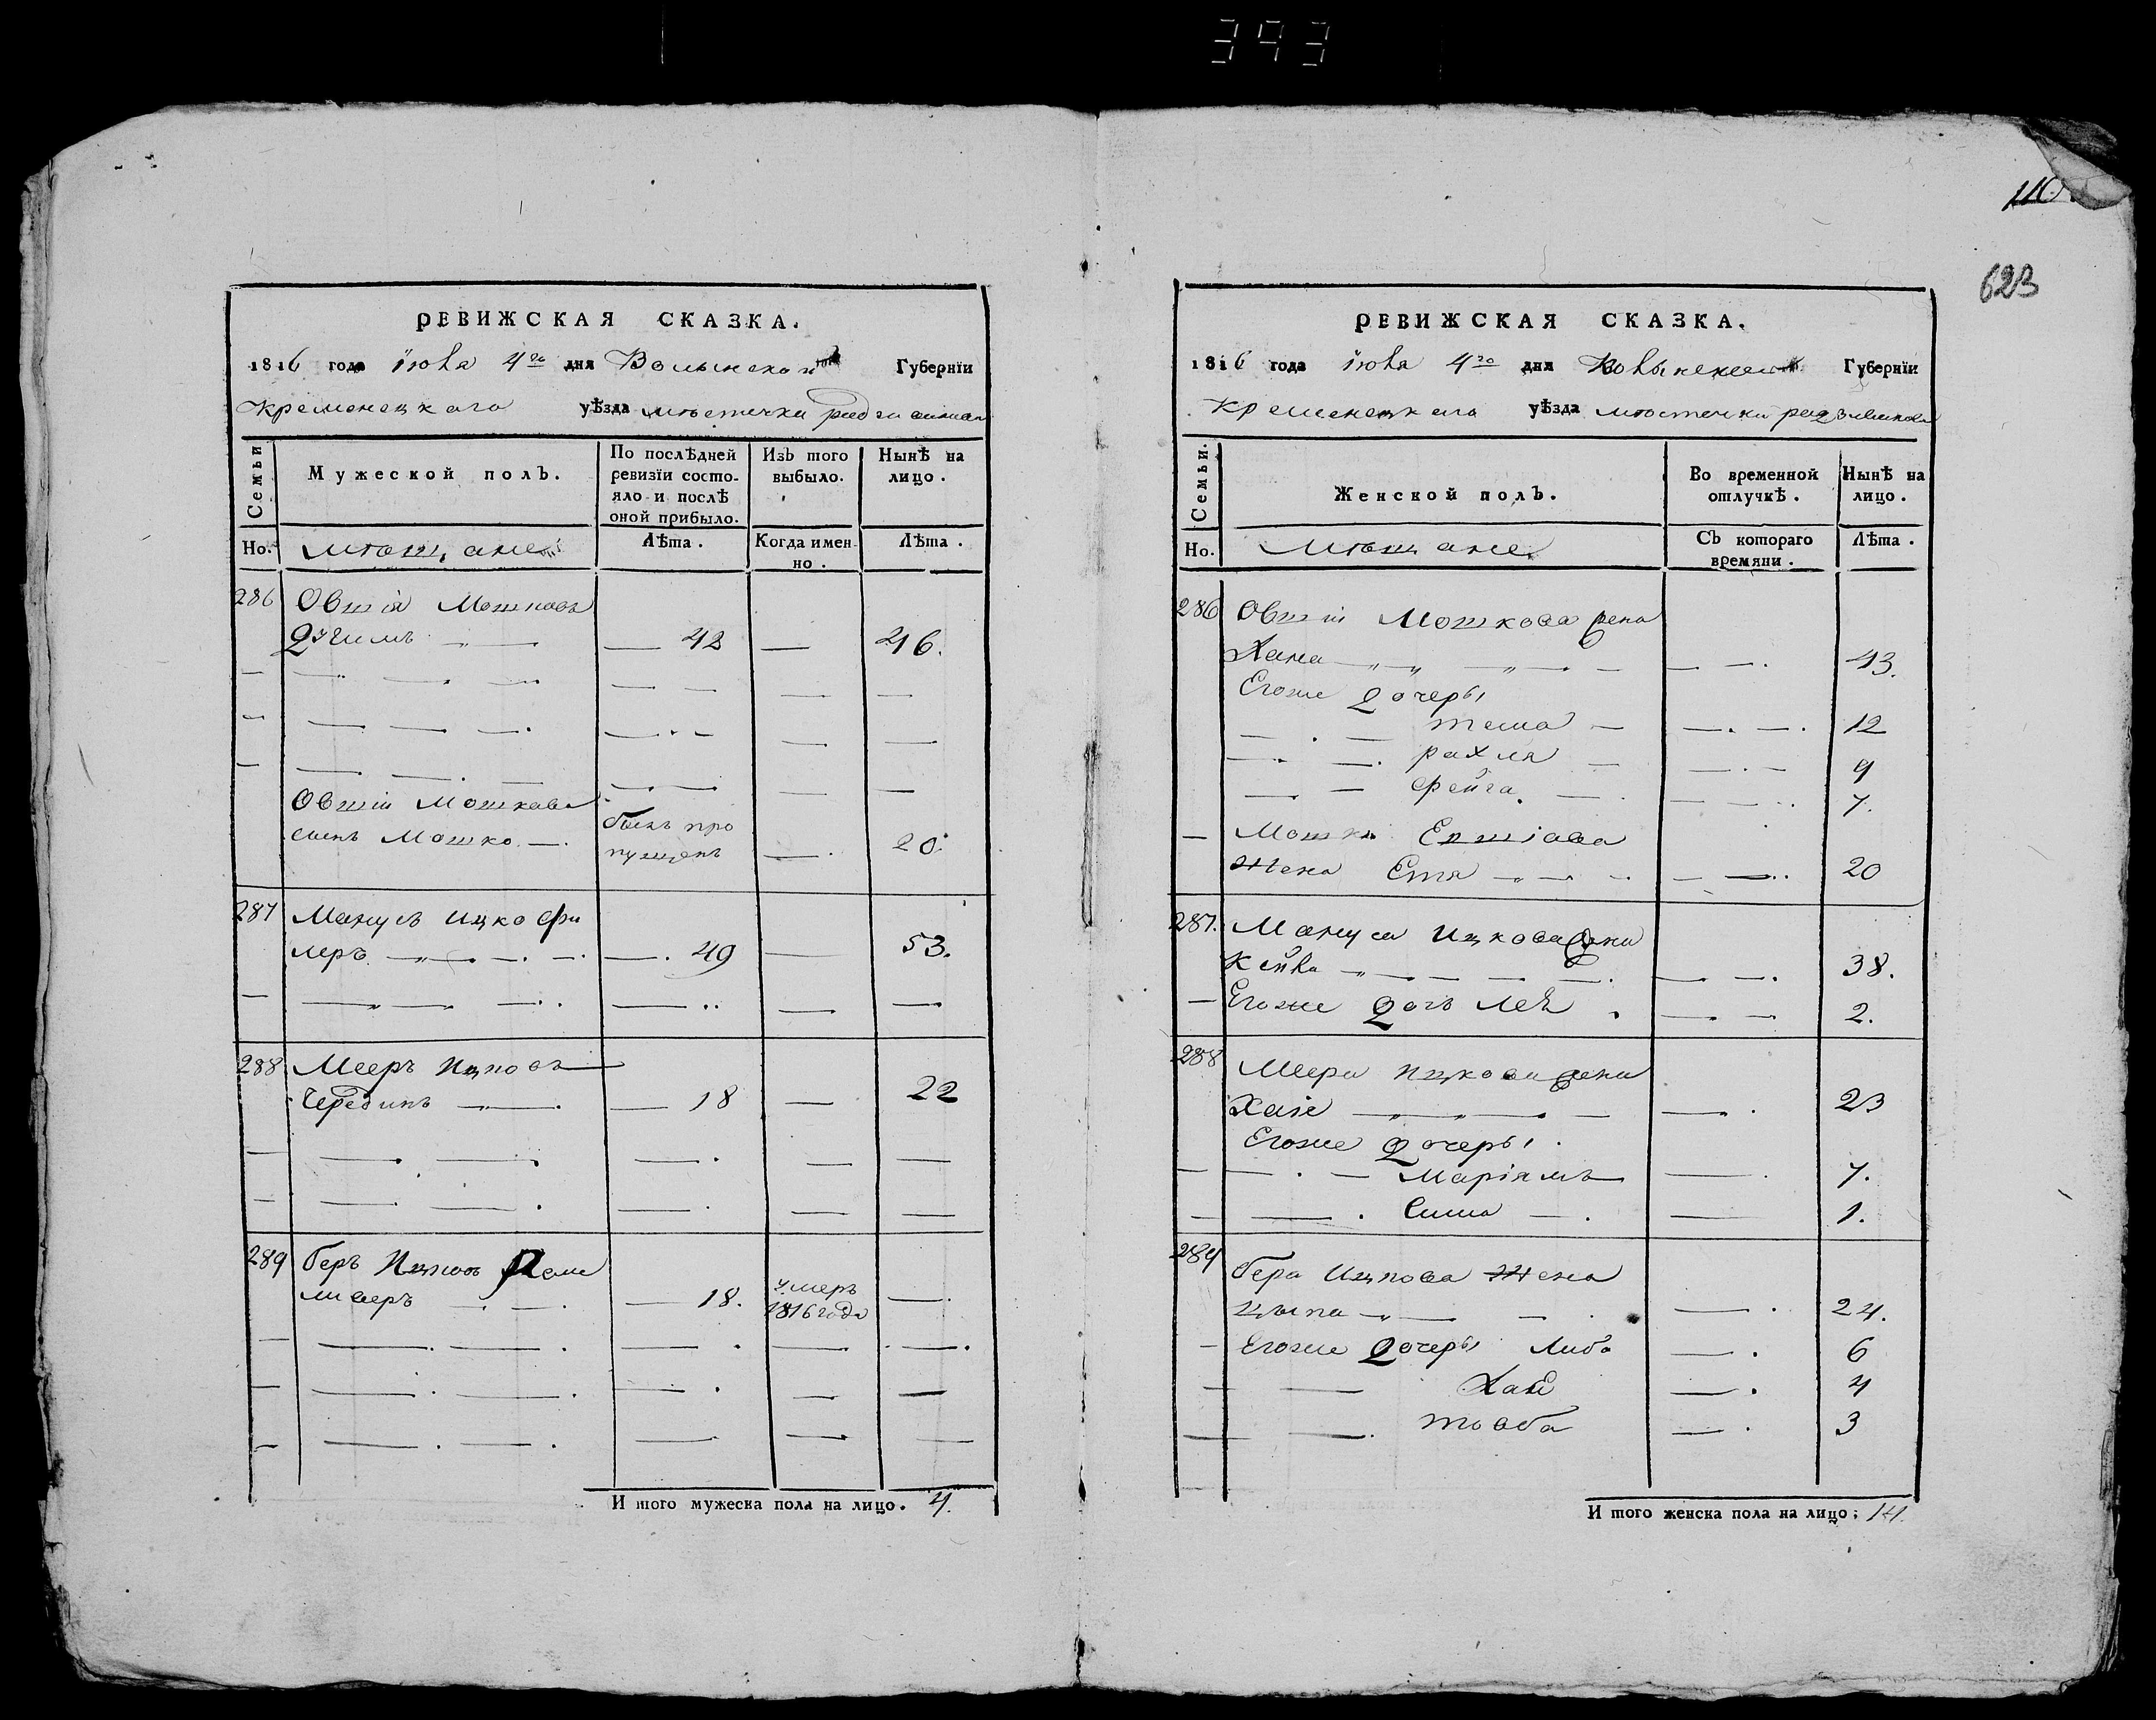 393
110
623
РЕВИЖСКАЯ СКАЗКА.
1816 года іюля 4го дня Волынской Губернїи
Кременецкаго уѣзда мѣстечка радзивилова
Семьи
Мужеской полъ.
По послѣдней ревизїи состо-
яло и послѣ
оной прибыло.
Изъ того
выбыло.
Нынѣ на
лицо.
Но.
мѣщане
Лѣта.
Когда имен-
но.
Лѣта.
286 Овшія Мошковъ
42 — 46.
Овшіи Мошкова
сынъ Мошко — былъ про
пущенъ — 20.
287 Манусъ Ицко фи
леръ — 49 — 53.
288 Мееръ Ицковъ
Чередикъ — 18 — 22
289 беръ Ицковъ
— 18. умеръ
1816 года —
И того мужеска пола на лицо. 4.
РЕВИЖСКАЯ СКАЗКА.
1816 года іюля 4го дня Волынской Губернїи
Кременецкаго уѣзда мѣстечка радзивилова
Семьи.
Женской полъ.
Во временной
отлучкѣ.
Нынѣ на
лицо.
Но.
Мѣщане
Съ котораго
времяни.
Лѣта.
286 Овшіи Мошкова жена
Хана — 43.
Егоже дочеры
тема — 12
рахля — 9
фейга. — 7.
— Мошки Евшіова
жена Етя — 20
287. Мануса Ицкова жена
Кейла — 38.
— Егоже дочь Леѣ 2.
288 Меера Ицкова жена
Хаіе — 23
Егоже дочеры
Маріямъ — 7.
Сима — 1.
289 бера Ицкова жена
Цыпа — 24.
— Егоже дочеры Либа — 6
Хаѣ — 4
товба — 3
И того женска пола на лицо; 14.